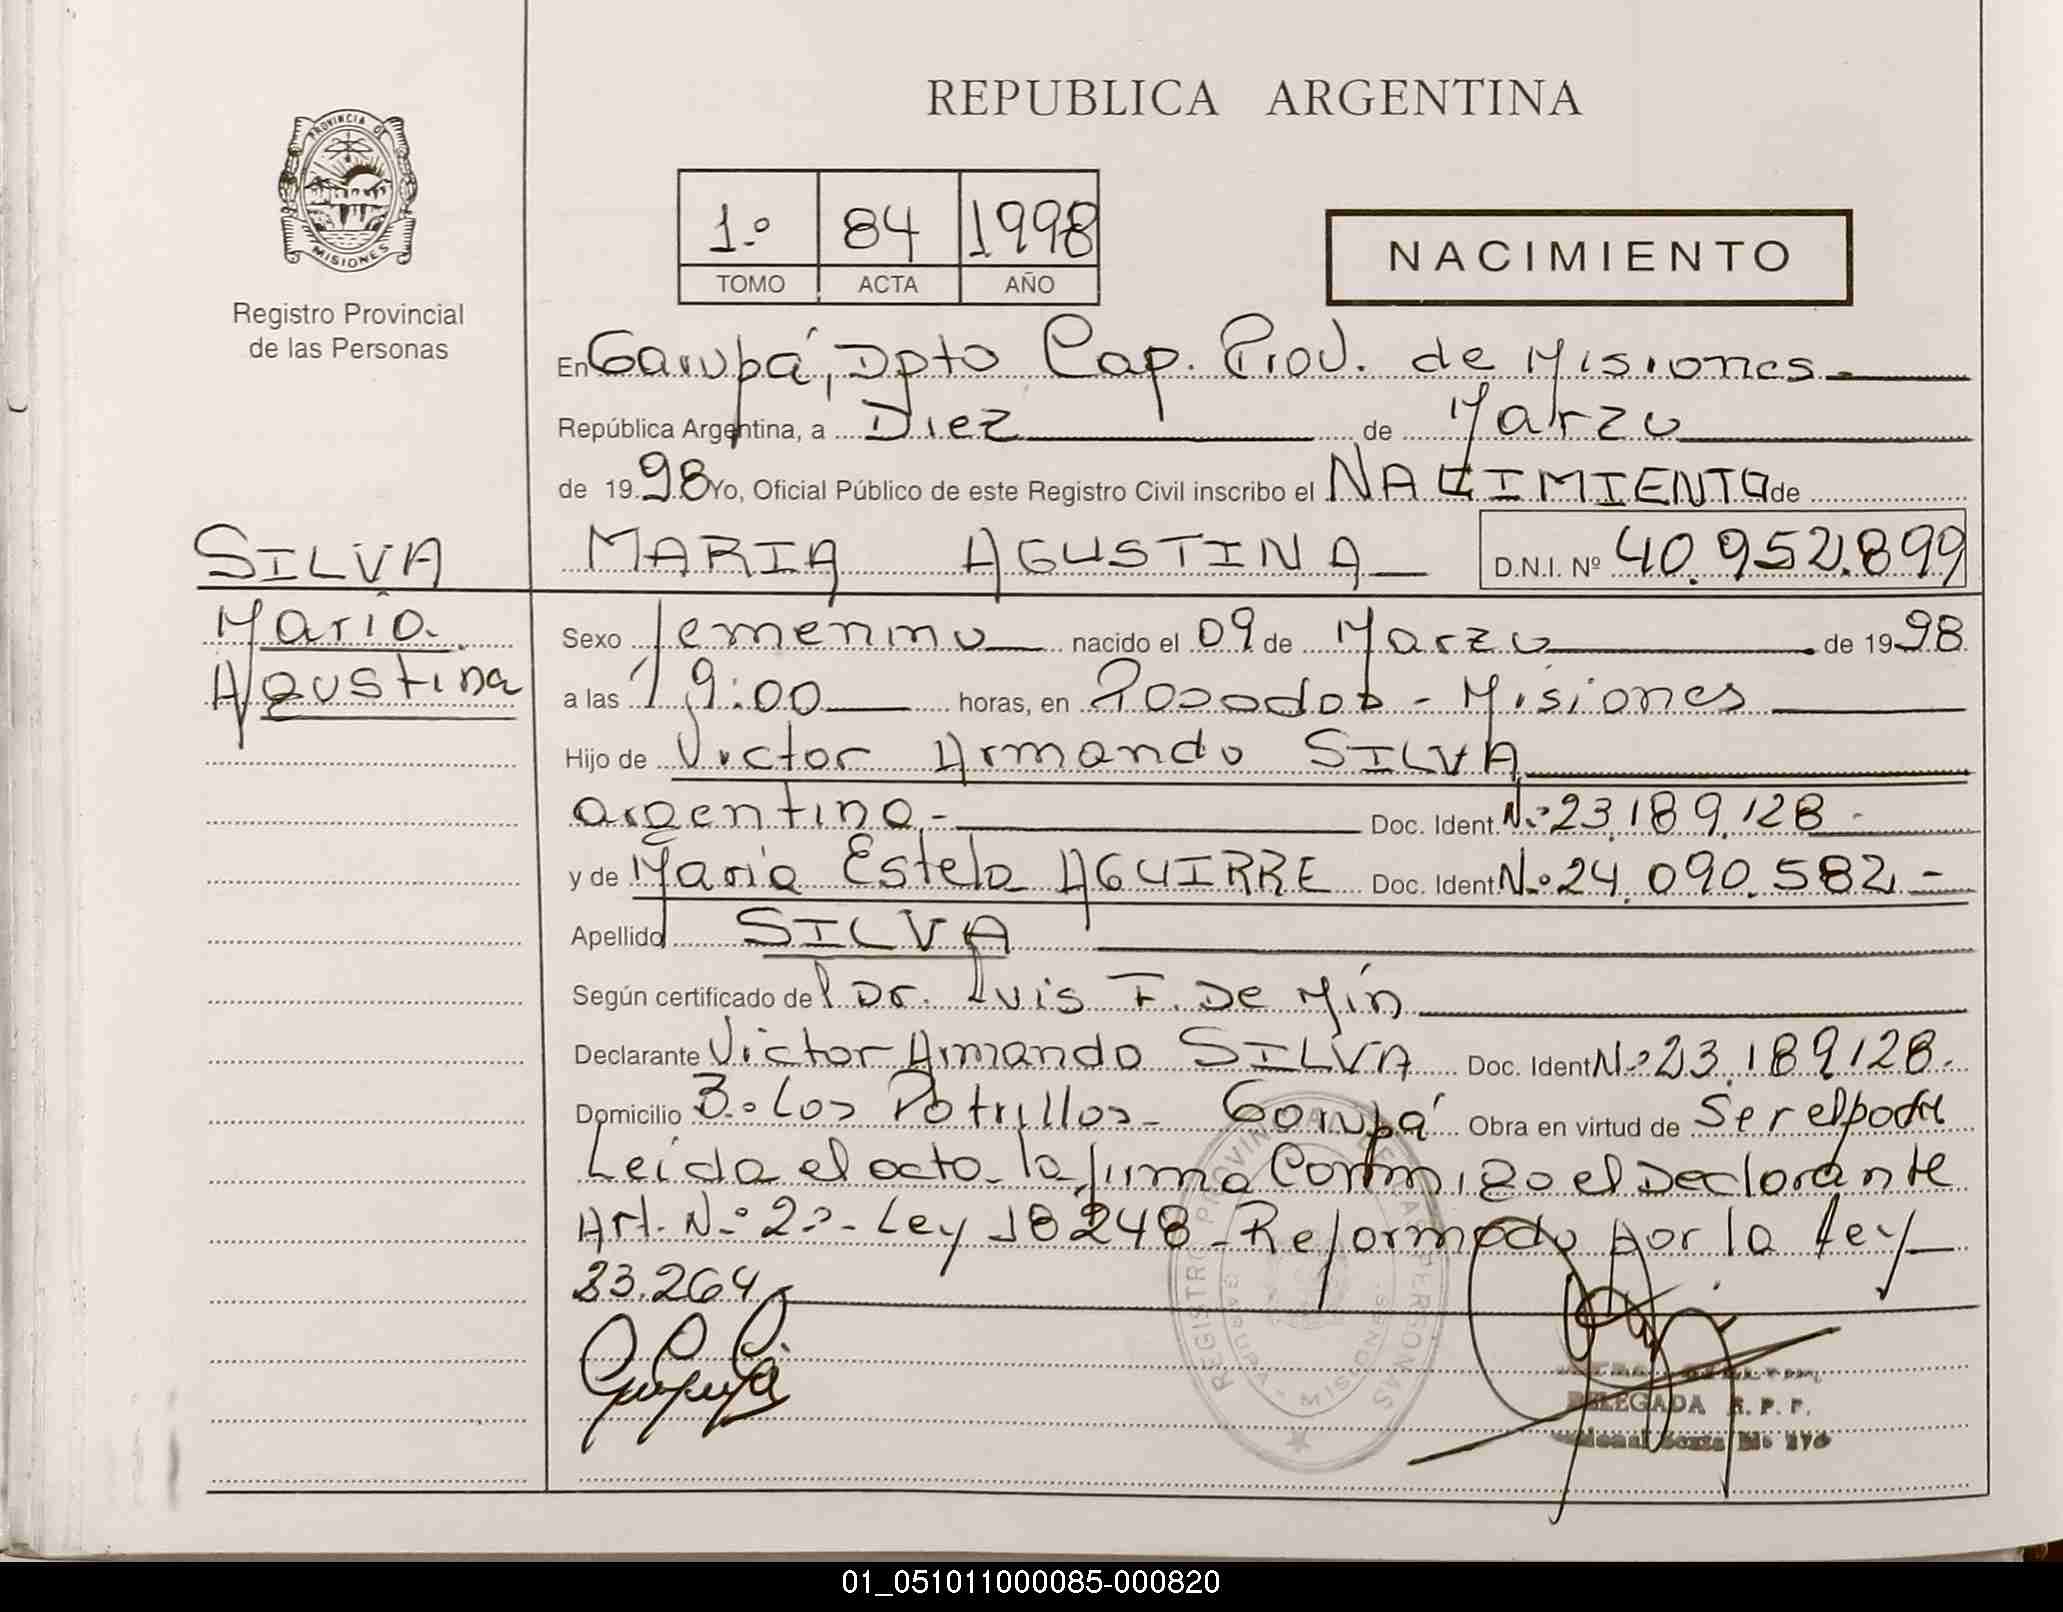 REPUBLICA ARGENTINA
PROVINCIA DE
MISIONES
Registro Provincial
de las Personas
1.º 84 1998
TOMO ACTA AÑO
NACIMIENTO
En Garupá, Dpto Cap. Prov. de Misiones.
República Argentina, a Diez de Marzo
de 1998 Yo, Oficial Público de este Registro Civil inscribo el NACIMIENTO de
SILVA
Maria
Agustina
MARIA AGUSTINA D.N.I. Nº 40.952.899
Sexo femenino nacido el 09 de Marzo de 1998
a las 19:00 horas, en Posadas - Misiones
Hijo de Victor Armando SILVA
argentino.- Doc. Ident. N.º 23.189.128-
y de Maria Estela AGUIRRE Doc. Ident N.º 24.090.582.-
Apellido SILVA
Según certificado del Dr. Luis F. De Min
Declarante Victor Armando SILVA Doc. Ident N.º 23.189.128.
Domicilio B.º Los Potrillos- Garupá Obra en virtud de Ser el padre
Leida el acta la firma Conmigo el Declarante
Art. N.º 2.º- Ley 18248- Reformado por la Ley
23.264
REGISTRO PROVINCIAL DE LAS PERSONAS
GARUPA - MISIONES
DELEGADA R. P. P.
01_051011000085-000820